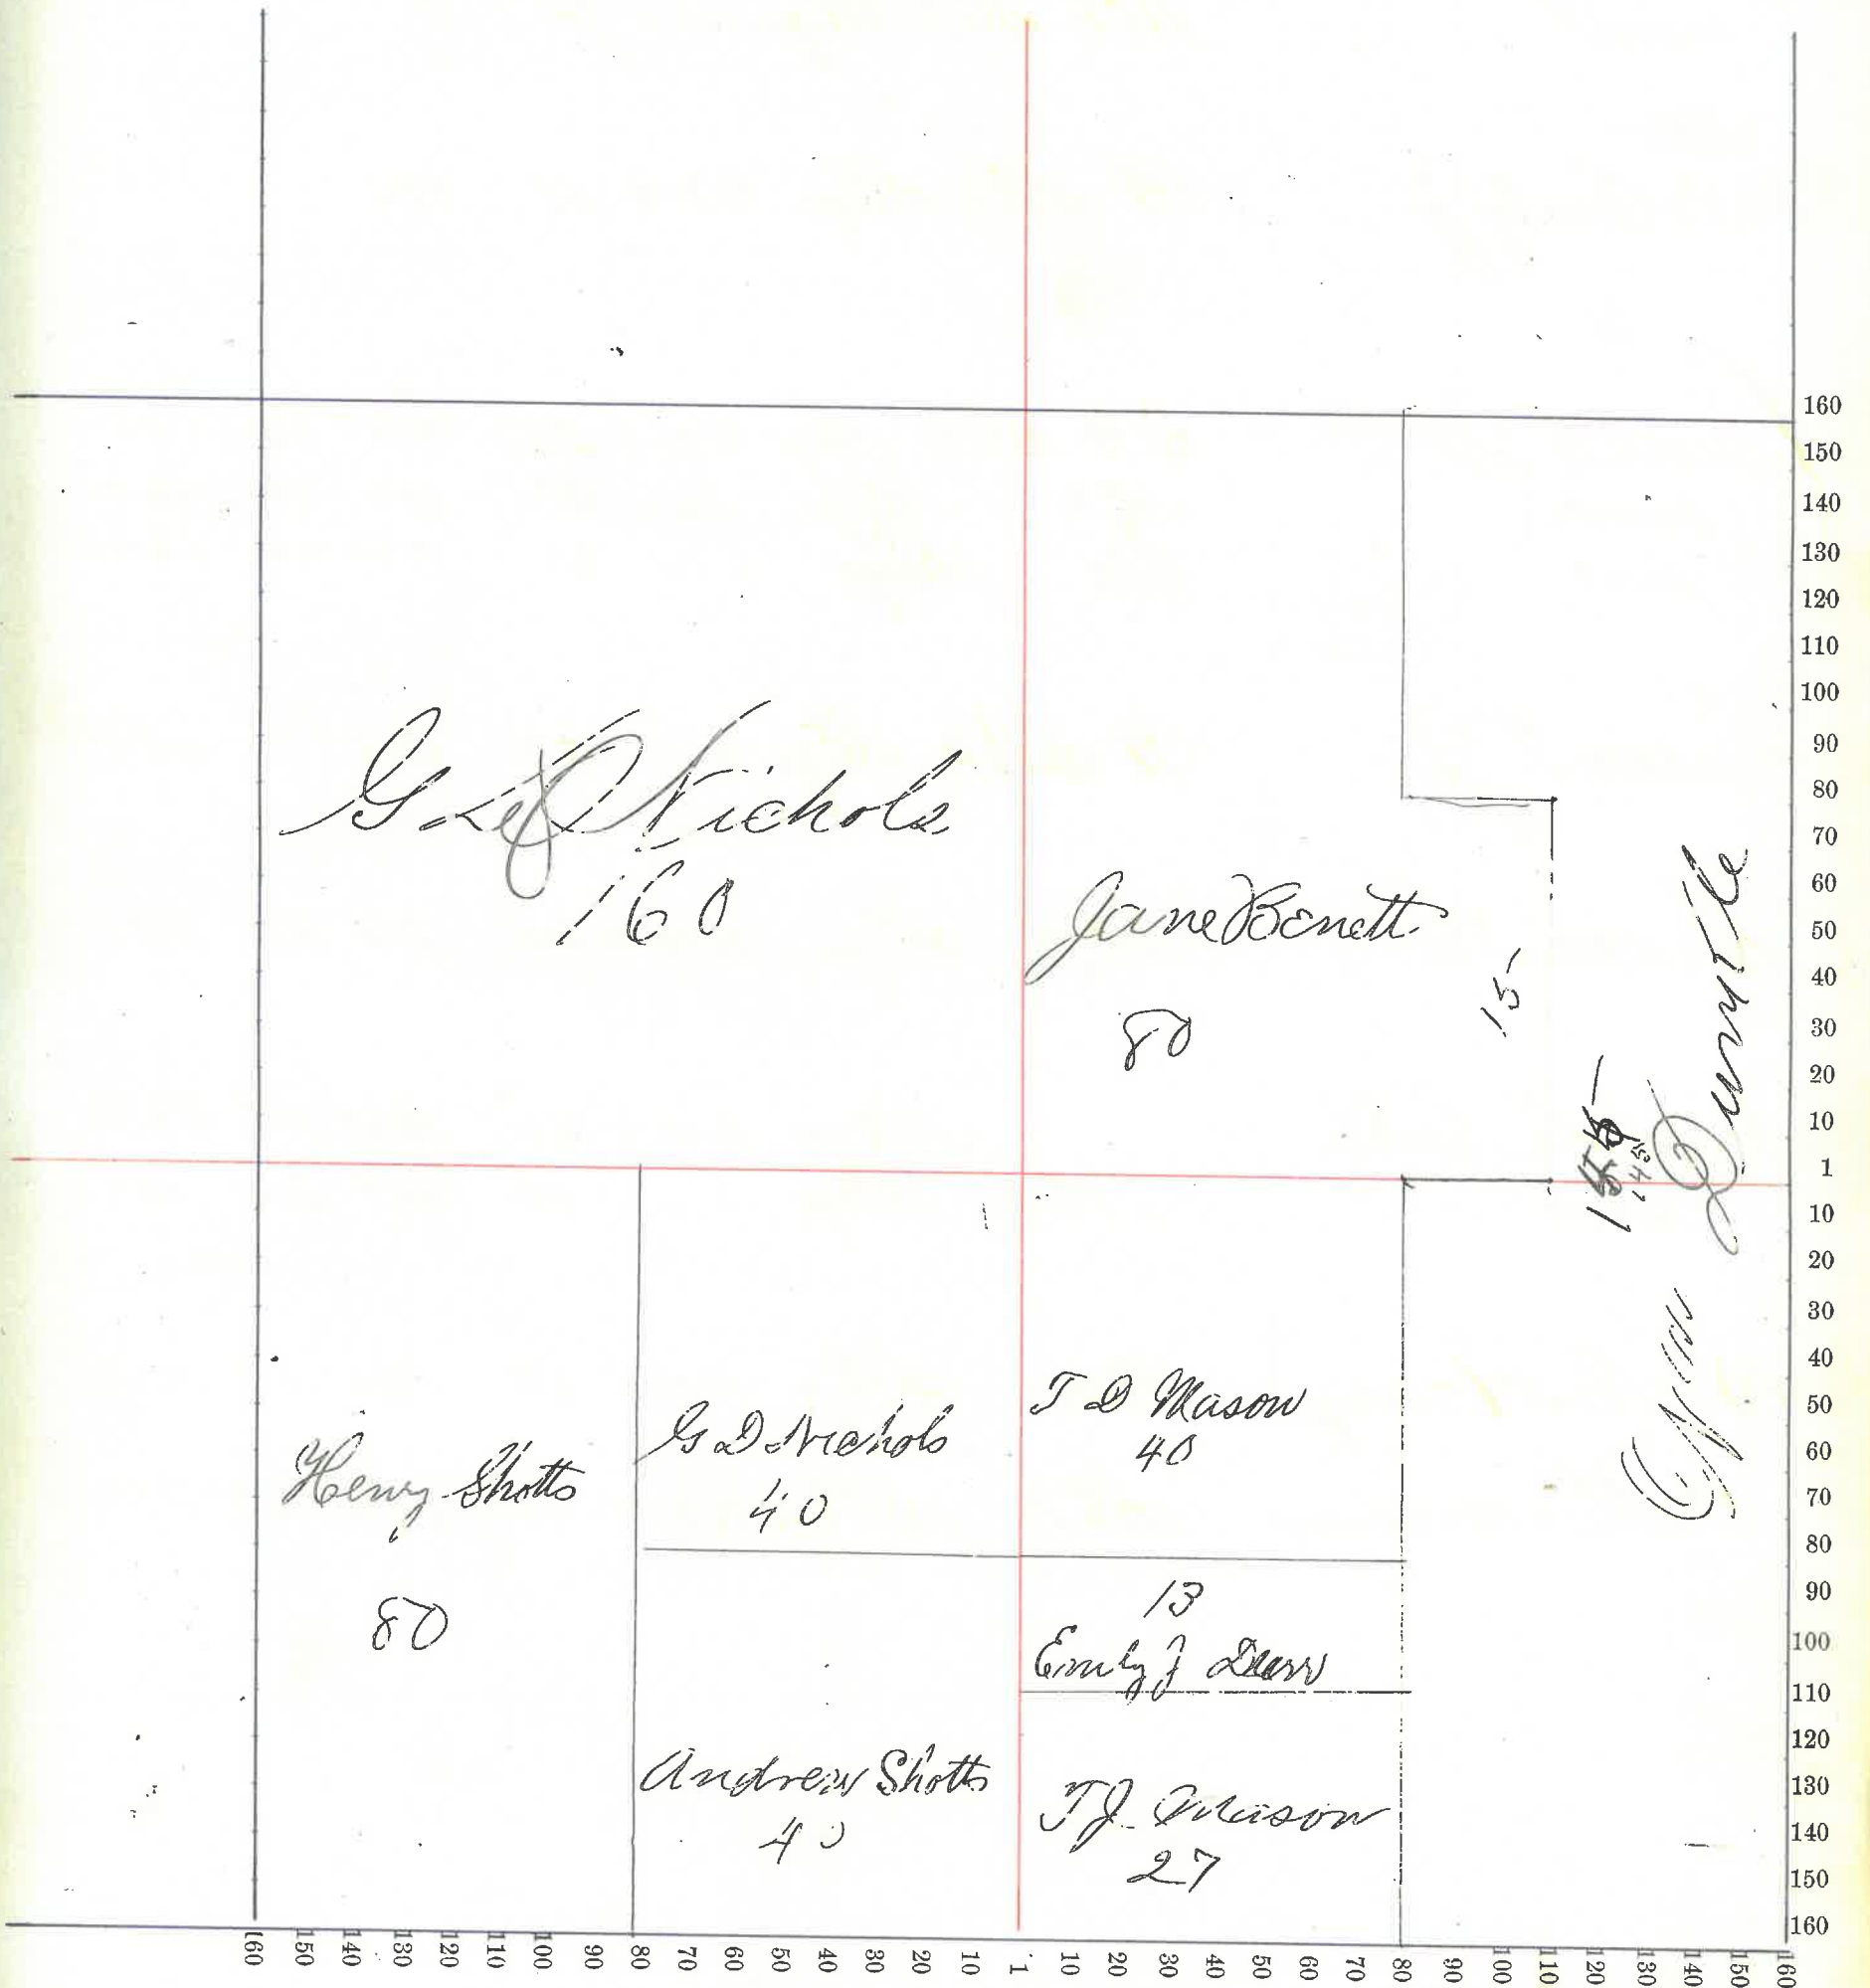 160
150
140
130
120
110
100
90
80
70
60
50
40
30
20
10
1
10
20
30
40
50
60
70
80
90
100
110
120
130
140
150
160
G Nichols
160
Jane Benett
80
15
145
Henry Shotts
80
G D Nichols
40
T D Mason
40
13
Emily J Durr
Andrew Shotts
40
T J Mason
27
160
150
140
130
120
110
100
90
80
70
60
50
40
30
20
10
1
10
20
30
40
50
60
70
80
90
100
110
120
130
140
150
160